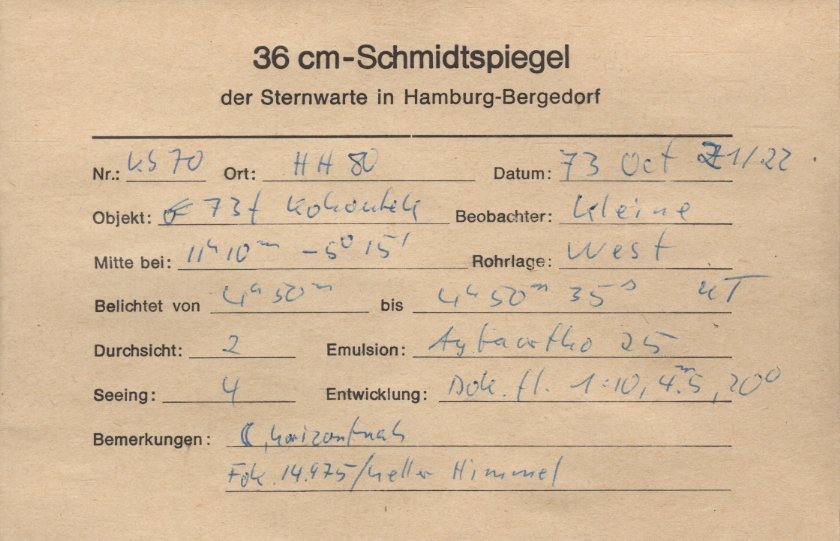 36 cm-Schmidtspiegel
der Sternwarte in Hamburg-Bergedorf
Nr.: KS 70 Ort: HH 80 Datum: 73 Oct 21/22
Objekt: 73f Kohoutek Beobachter: Kleine
Mitte bei: 11h 10m -5° 15' Rohrlage: West
Belichtet von 4h 50m bis 4h 50m 35s UT
Durchsicht: 2 Emulsion: 25
Seeing: 4 Entwicklung: Dok. fl. 1:10, 4m.5, 20°
Bemerkungen: ☾, horizontnah
Fok. 14.975/heller Himmel